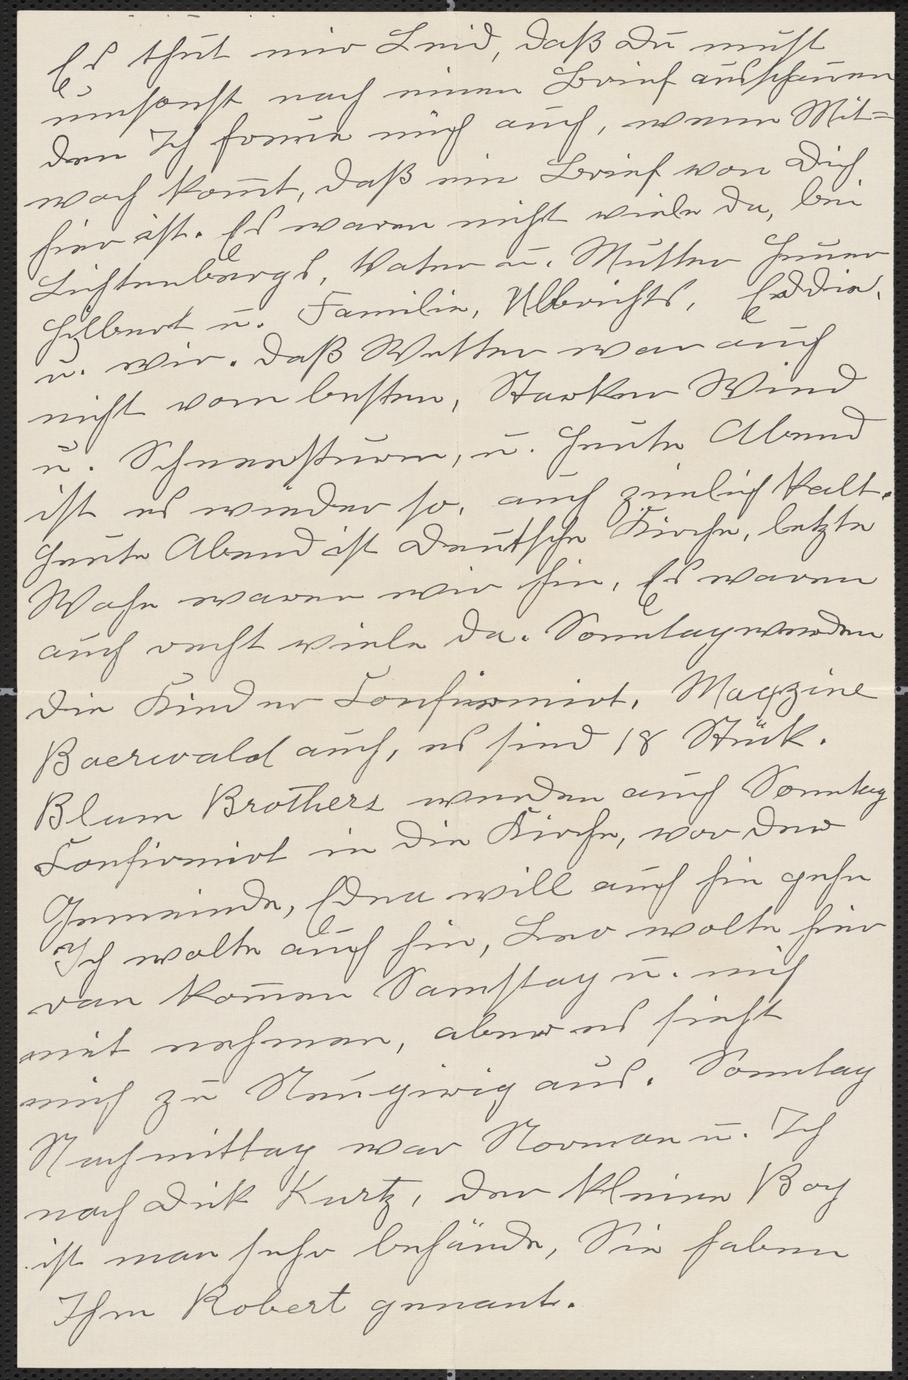 Es thut mir Leid, daß Du must
umsonst nach einen Brief ausschauen
den Ich freue mich auch, wenn Mit=
woch komt, daß ein Brief von Dich
hier ist. Es waren nicht viele da, bei
Lichtenbergs, Vater u. Mutter Heuer
Hilbert u. Familie, Ulbrichts, Eddie,
u. wir. Daß Wetter war auch
nicht vom besten, Starken Wind
u. Schneesturm, u. heute Abend
ist es wieder so, auch zimlich kalt.
Heute Abend ist Deutsche Kirche, letzte
Wohe waren wir hin, Es waren
auch recht viele da. Sonntag werden
die Kinder Confirmirt, Magzine
Baerwald auch, es sind 18 Stück.
Blum Brothers werden auch Sonntag
Confirmirt in die Kirche, vor der
Gemeinde, Edna will auch hin gehn
Ich wolte auch hin, Leo wolte hier
van komen Samstag u. mich
mit nehmen, aber es sieht
mich zu Neugirig aus. Sonntag
Nachmittag war Norman u. Ich
nach Dick Kurtz, der kleine Boy
ist man sehr behände, Sie haben
Ihm Robert genant.